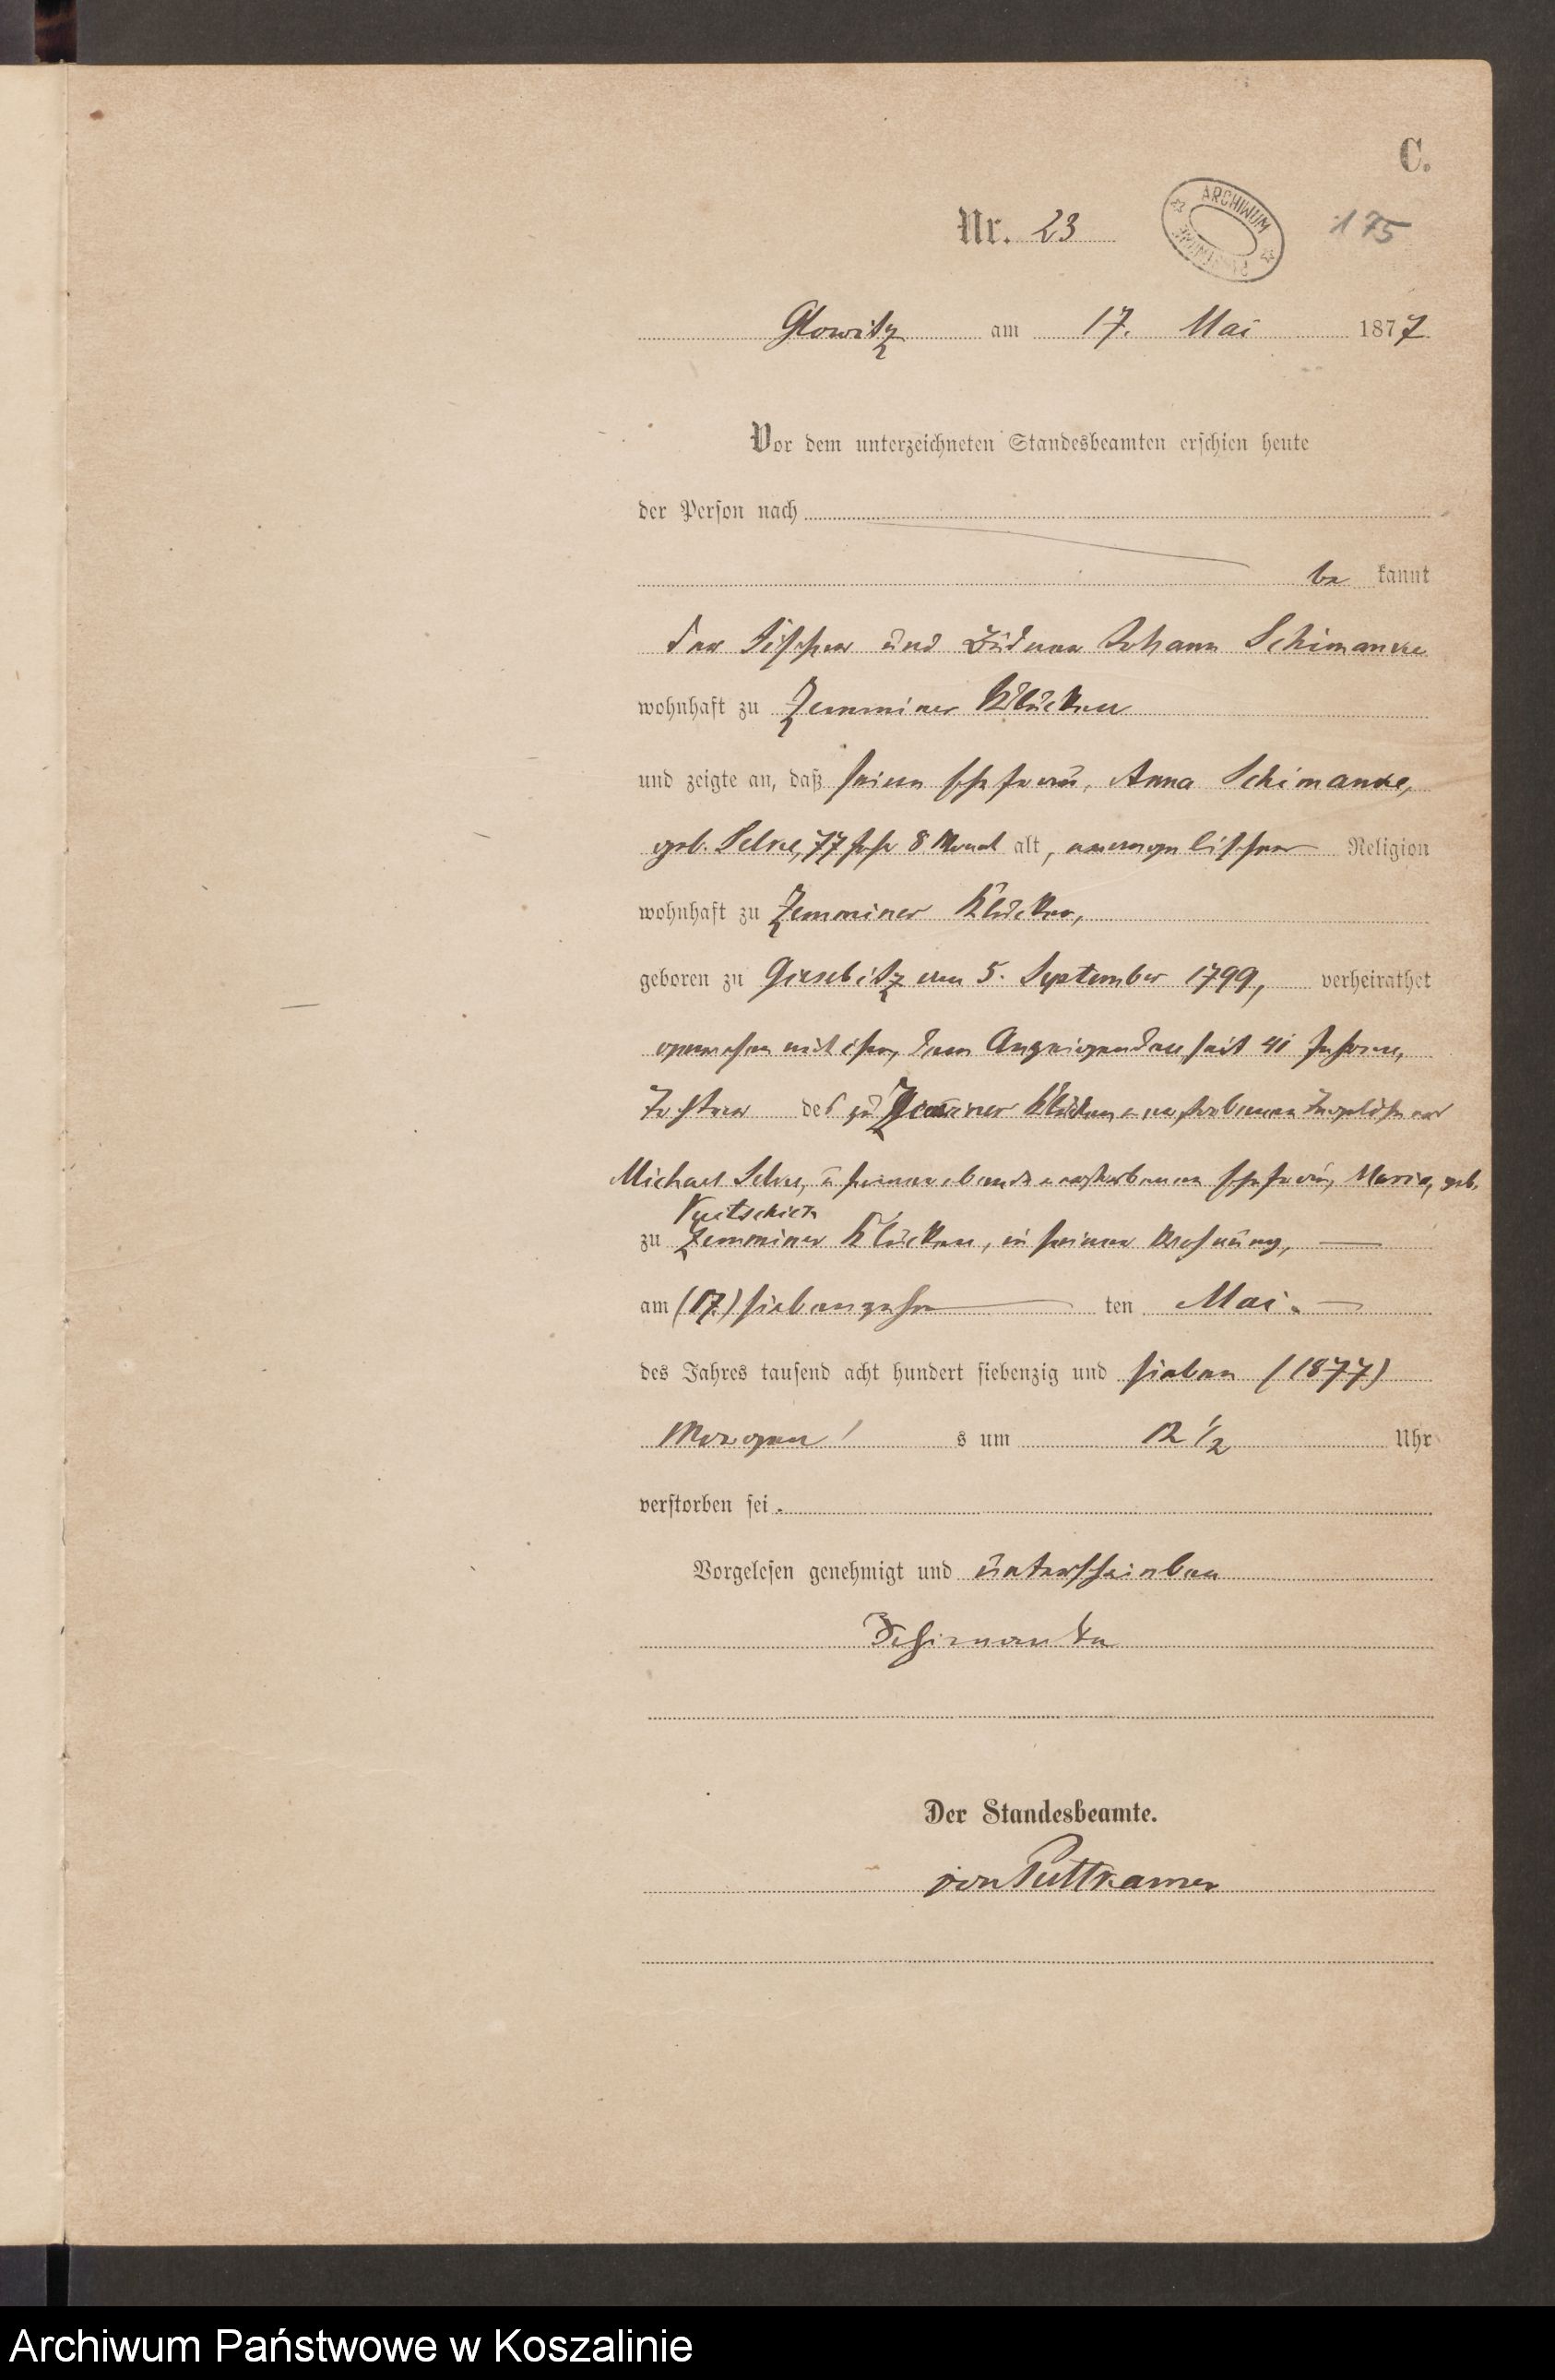 C.
Nr. 23
ARCHIWUM
175
Glowitz am 17. Mai 1877
Vor dem unterzeichneten Standesbeamten erschien heute
der Person nach
be kannt
der Fischer und Büdner Johann Schimanke
wohnhaft zu Zemminer Klücken
und zeigte an, daß seine Ehefrau, Anna Schimanke,
geb. Selke, 77 Jahr 8 Monat alt, evangelischer Religion
wohnhaft zu Zemminer Klücken,
geboren zu Giesebitz am 5. September 1799, verheirathet
gewesen mit ihm, dem Anzeigenden seit 41 Jahren,
Tochter des zu Zemminer Klücken verstorbenen Tagelöhner
Michael Selke, u seiner ebenda verstorbenen Ehefrau, Maria, geb.
zu Zemminer Klücken, in seiner Wohnung,
am (17.) siebenzehn ten Mai.
des Jahres tausend acht hundert siebenzig und sieben (1877)
Morgen s um 12 1/2 Uhr
verstorben sei.
Vorgelesen genehmigt und unterschrieben
Schimanke
Der Standesbeamte.
von Puttkamer
Archiwum Państwowe w Koszalinie